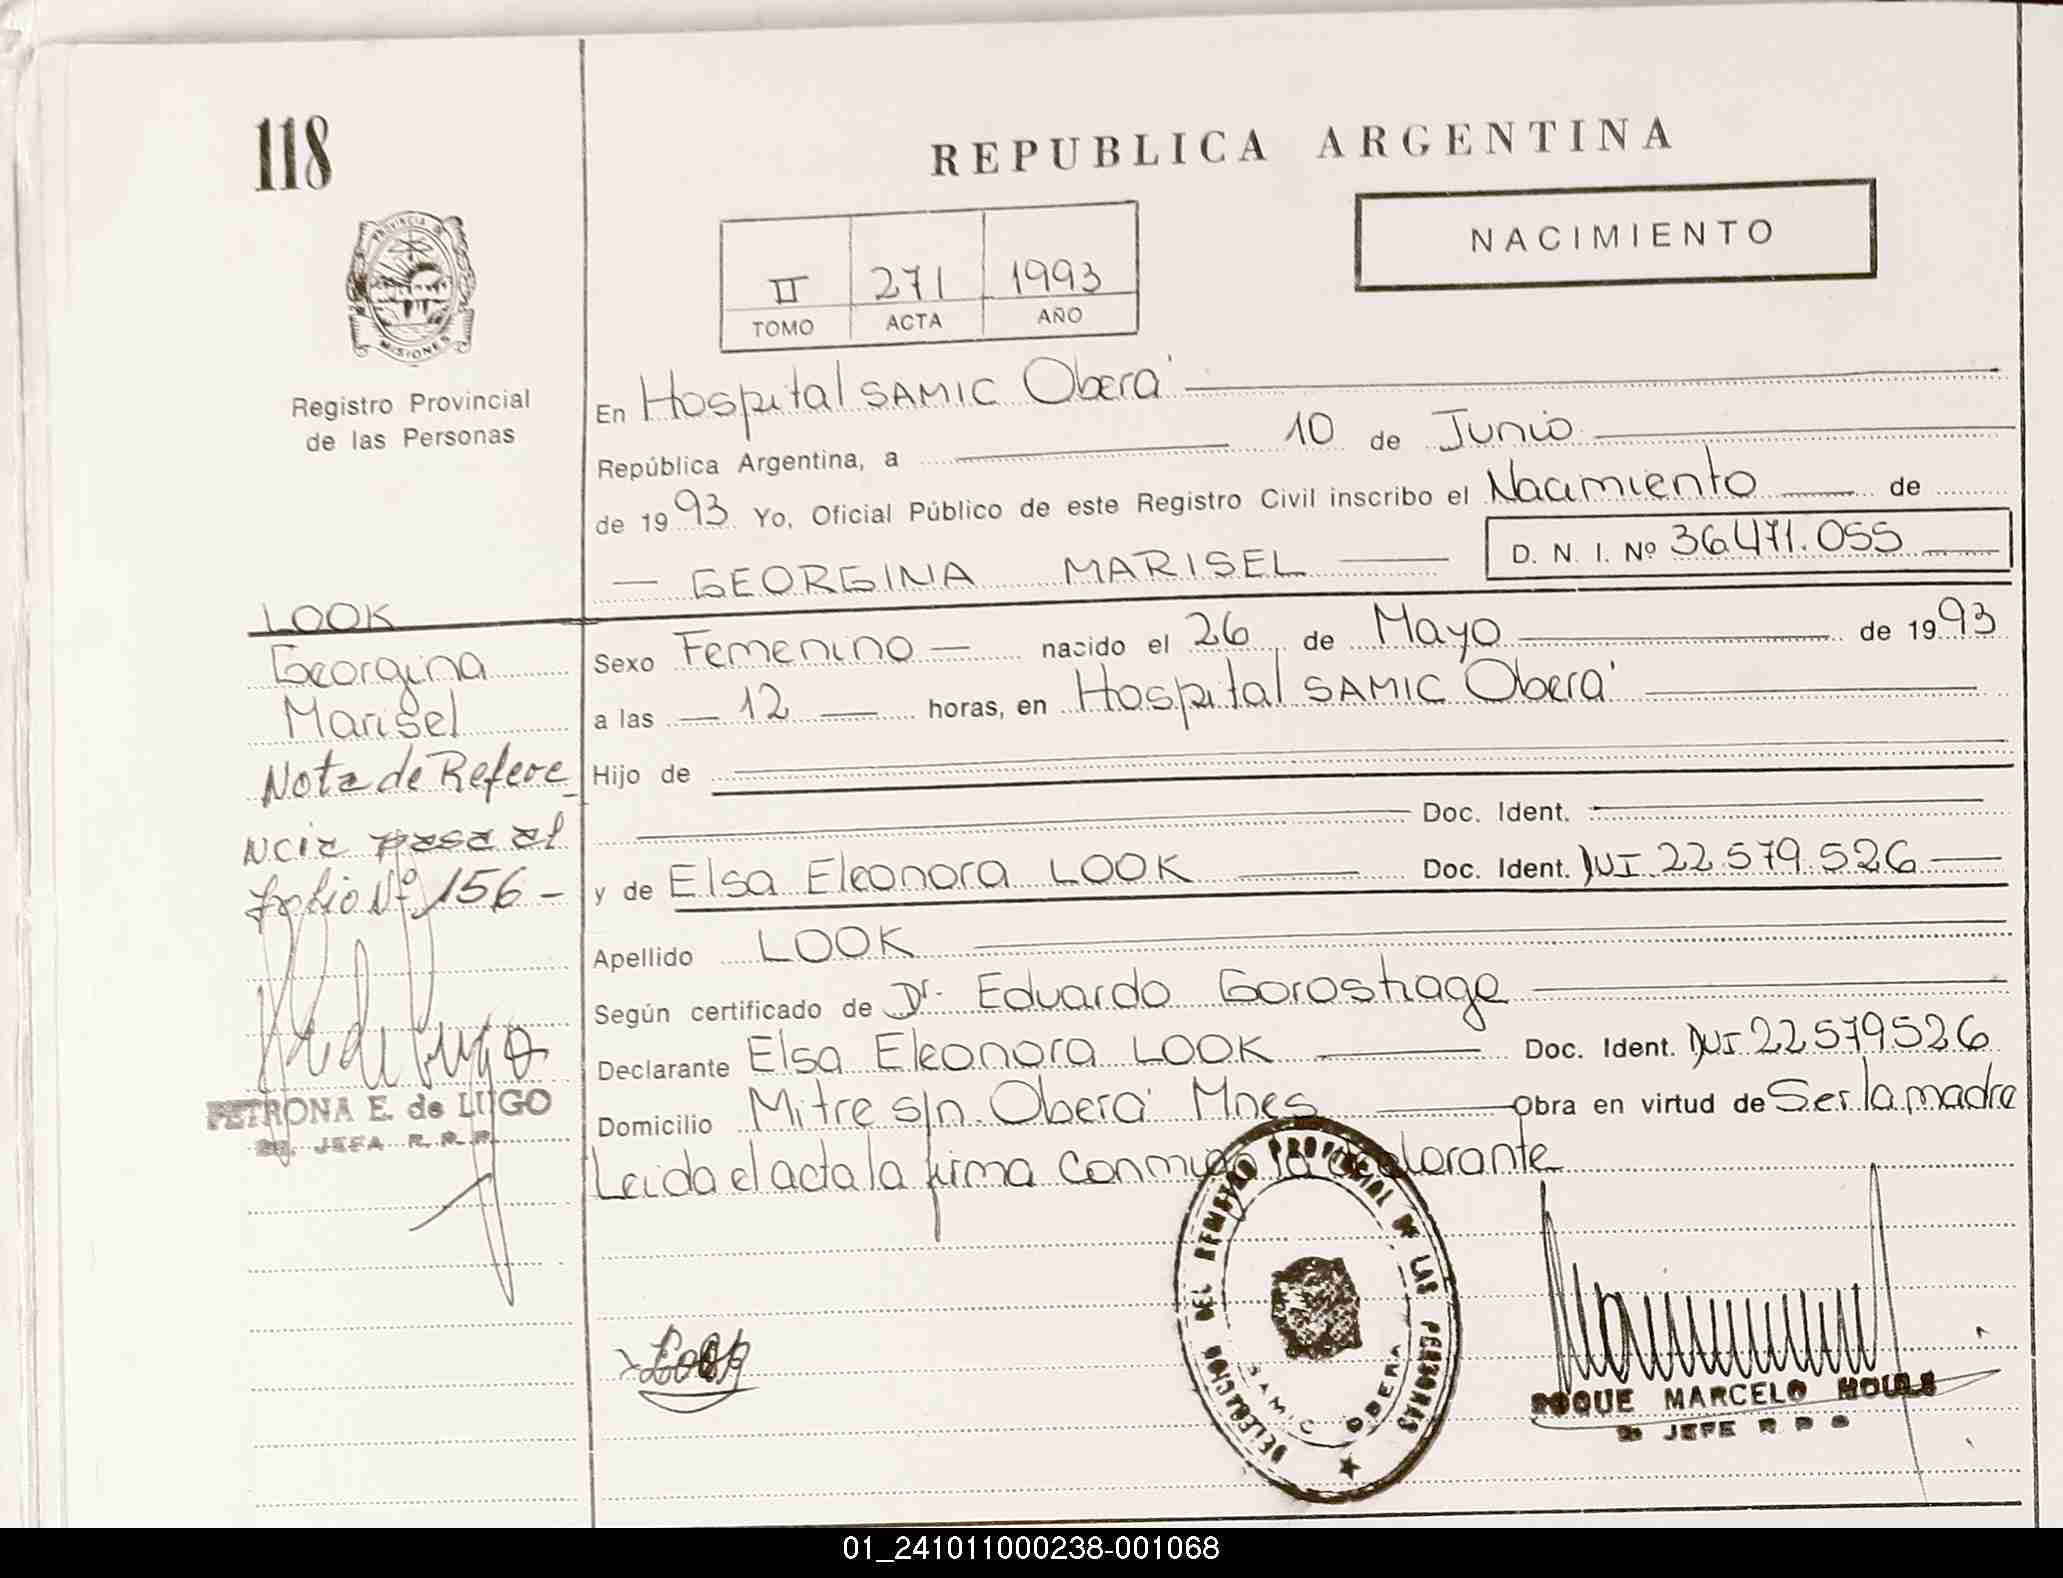 118
REPUBLICA ARGENTINA
NACIMIENTO
PROVINCIA DE
MISIONES
Registro Provincial
de las Personas
II 271 1993
TOMO ACTA AÑO
En Hospital SAMIC Oberá
República Argentina, a 10 de Junio
de 1993 Yo, Oficial Público de este Registro Civil inscribo el Nacimiento de
GEORGINA MARISEL D. N. I. Nº 36.471.055
LOOK
Georgina
Marisel
Nota de Refere
ncia pasa al
folio Nº 156 -
PETRONA E. de LUGO
JEFA R. P. P.
Sexo Femenino nacido el 26 de Mayo de 1993
a las 12 horas, en Hospital SAMIC Oberá
Hijo de
Doc. Ident.
y de Elsa Eleonora LOOK Doc. Ident. DNI 22.579.526
Apellido LOOK
Según certificado de Dr. Eduardo Gorostiage
Declarante Elsa Eleonora LOOK Doc. Ident. DNI 22579526
Domicilio Mitre s/n. Oberá Mnes Obra en virtud de Ser la madre
Leida el acta la firma conmigo la declarante
Look
DELEGACION DEL REGISTRO PROVINCIAL DE LAS PERSONAS
SAMIC OBERA
ROQUE MARCELO
JEFE R P P
01_241011000238-001068